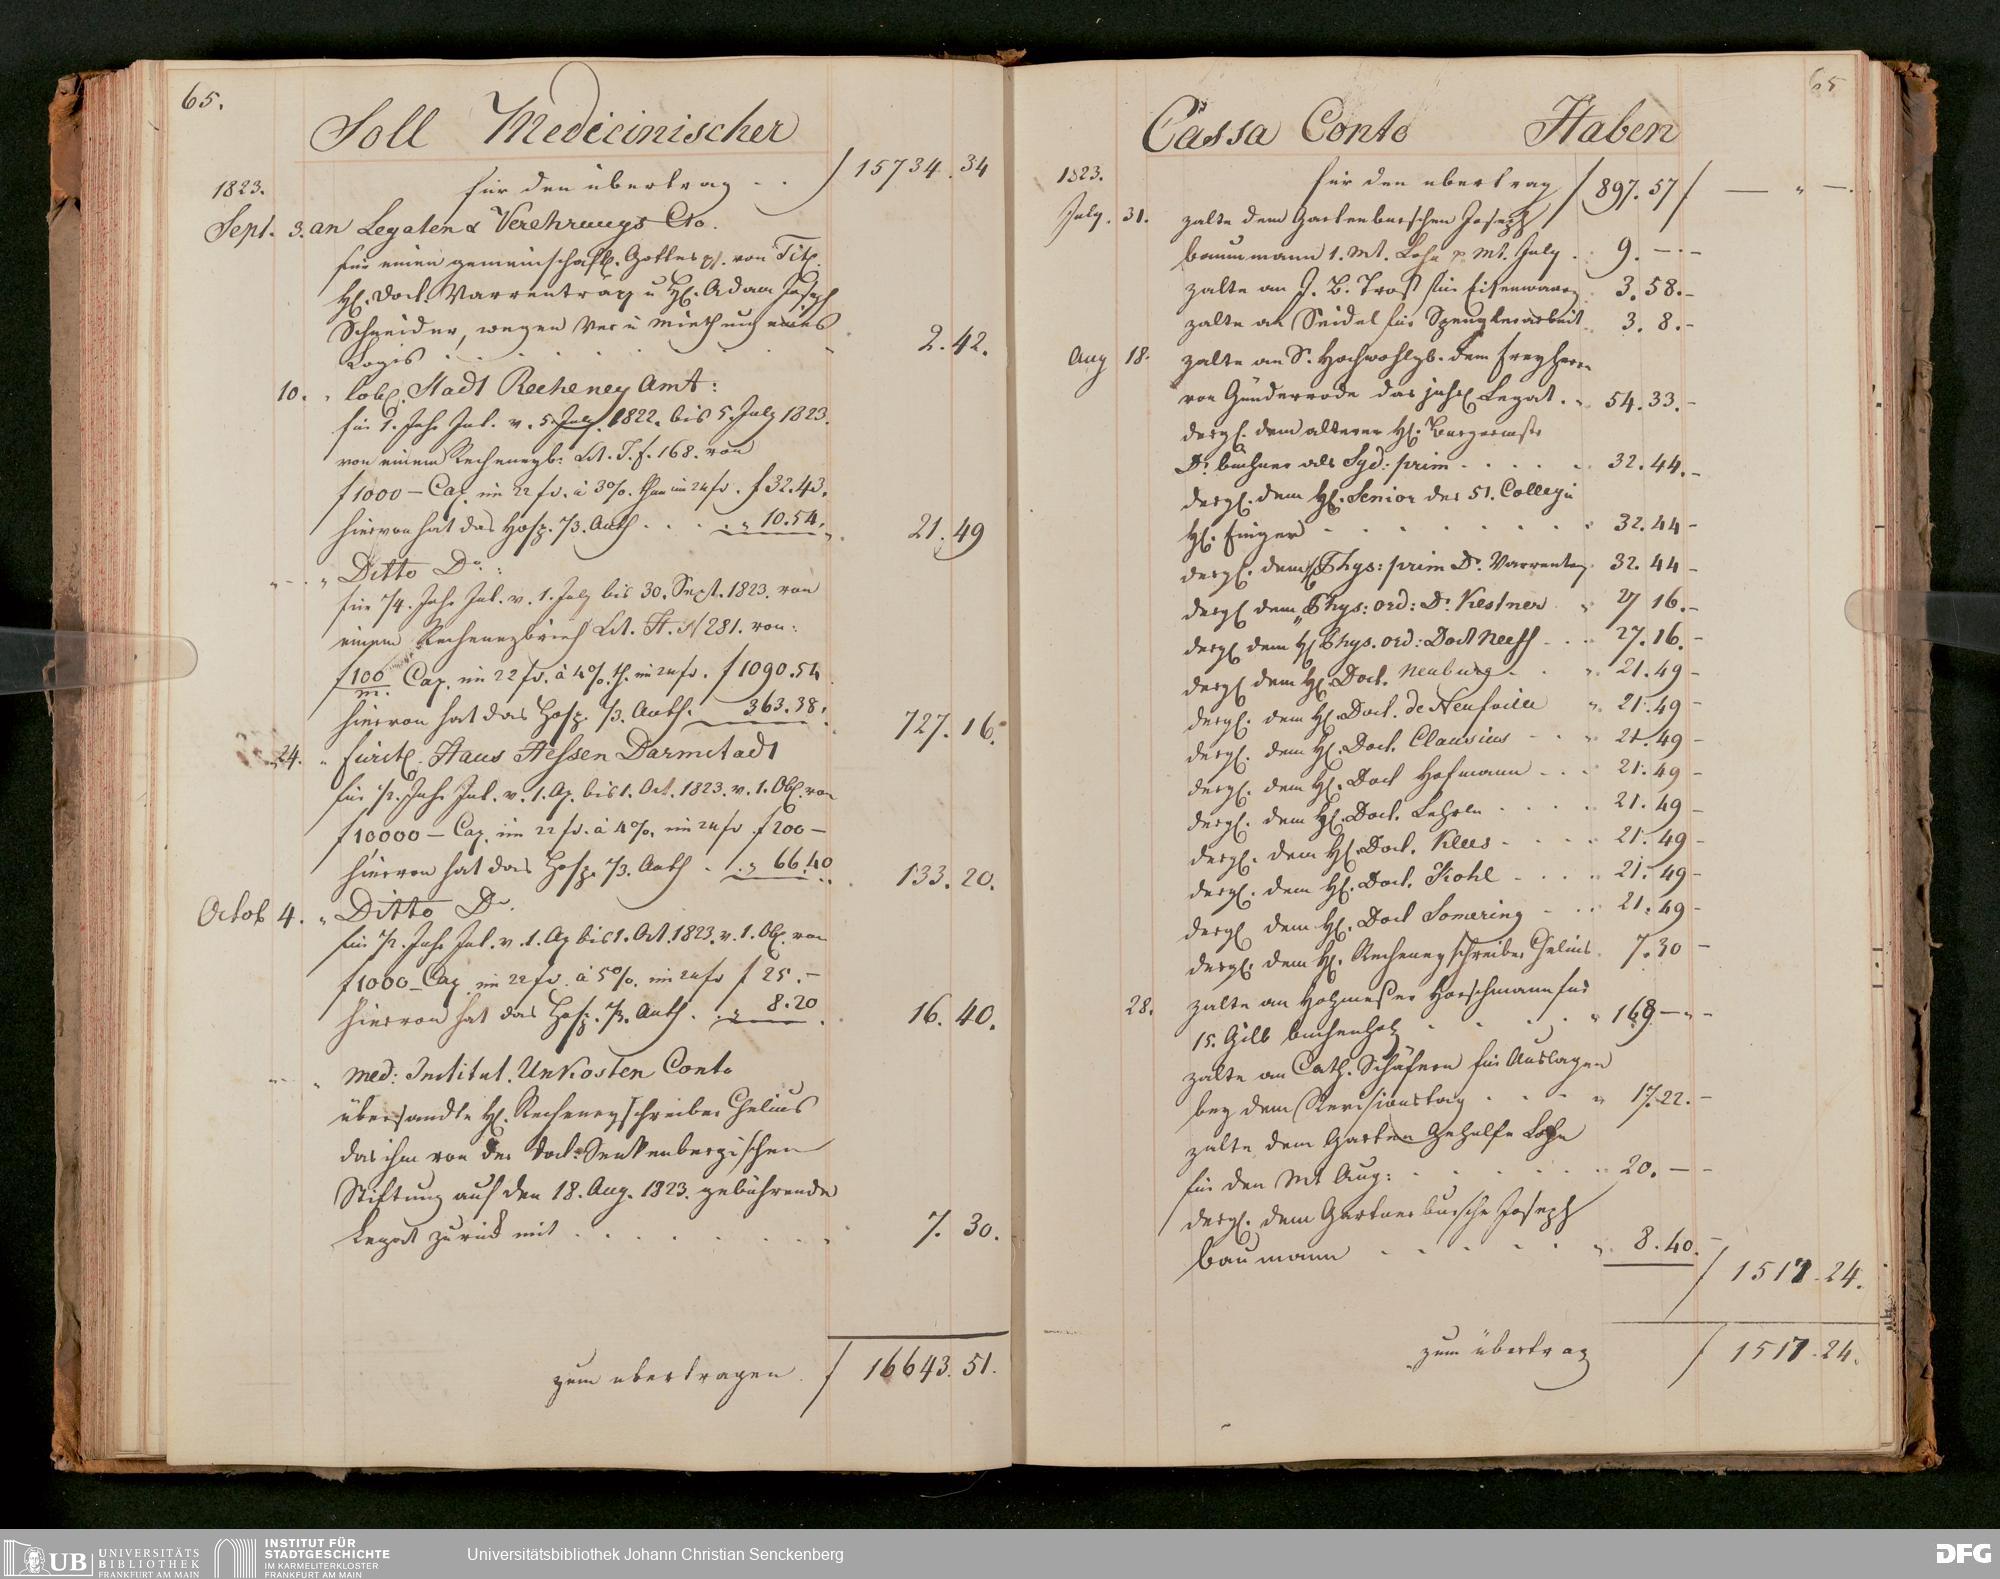 65.
Soll Medicinischer
1823. für den übertrag . . f 15734.34
Sept. 3. an Legaten & Verehrungs Cto.
für einen gemeinschaftl. Gottes pf. von Tit.
H. Doct. Varrentrap u H. Adam Joseph
Schneider, wegen Ver u Miethung eines
Logis . . . 2.42.
10. " löbl. Stadt Recheney Amt:
für 1. Jahr Int. v. 5. July 1822. bis 5. July 1823.
von einem Recheneyb: Lit. J. f. 168. von
f 1000 – Cap. im 22 fs. à 3%. thun im 24 fs. f 32.43.
hiervon hat das Hosp. 1/3. Anth . . . " 10.54. 21.49
" – . " Ditto Do. :
für 1/4. Jahr Int. v. 1. July bis 30. Sept. 1823. von
einem Recheneybrief Lit. H. N 281. von:
f 100/m. Cap. im 22 fs. à 4%. th. im 24 fs. f 1090.54
hiervon hat das Hosp. 1/3. Anth. 363.38. 727.16.
24. " fürstl. Haus Hessen Darmstadt
für 1/2. Jahr Int. v. 1. Ap. bis 1. Oct. 1823. v. 1. Obl. von
f 10000 – Cap. im 22 fs. à 4%. im 24 fs f 200 –
hiervon hat das Hosp. 1/3. Anth . . " 66.40 133.20.
Octob 4. " Ditto Do.
für 1/2. Jahr Int. v. 1. Ap bis 1. Oct. 1823. v. 1. Obl. von
f 1000 – Cap. im 22 fs. à 5%. im 24 fs f 25. –
hiervon hat das Hosp. 1/3. Anth . . " 8.20 16.40.
" – " med: Institut. Unkosten Conto
übersandte H. Recheneyschreiber Chelius
das ihm von der Doct: Senkenbergischen
Stiftung auf den 18. Aug. 1823. gebührende
Legat zurück mit . . . 7.30.
zum übertragen . f 16643.51.
65
Cassa Conto Haben
1823. für den übertrag f 897.57 f — " —.
July. 31. zalte dem Gartenburschen Joseph
Baummann 1. Mt. Lohn p. Mt. July . 9. – . –
zalte an J. B. Trost für Eisenwaare 3.58. –
zalte an Seidel für Spenglerarbeit 3. 8. –
Aug 18. zalte an S. Hochwohlgb. dem Freyherrn
von Günderrode das jährl Legat . " 54.33. –
dergl. dem älteren H. Burgermstr
Dr. Büchner als Syd: prim . . . . " 32.44. –
dergl. dem H. Senior des 51. Collegii
H. Finger . . . " 32.44 –
dergl. dem H Phys: prim Dr. Varrentrap. 32.44 –
dergl dem " Phys: ord: Dr. Kestner . " 27 16. –
dergl dem H Phys. ord: Doct Neeff . . 27.16. –
dergl dem H. Doct. Neuburg . . " 21.49 –
dergl. dem H. Doct. de Neufville " 21.49 –
dergl. dem H. Doct. Clausius . . " 21.49 –
dergl. dem H. Doct Hofmann . . . 21.49 –
dergl. dem H. Doct. Lehrln . . . . 21.49 –
dergl. dem H. Doct. Klees . . . . 21.49 –
dergl. dem H. Doct. Kohl . . . . 21.49 –
dergl dem H. Doct Somering . . . 21.49 –
dergl. dem H. Recheneyschreiber Chelius. 7.30 –
28. zalte an Holzmeßer Horschmann für
15. Gilb buchenholz . . . . " 169 – " –
zalte an Cath. Schäfern für Auslagen
bey dem Revisionstag . . . " 17.22. –
zalte dem Garten Gehülfe Lohn
für den Mt Aug: . . . . 20. – –
dergl. dem Gartner bursche Joseph
Baumann . . . . " 8.40. –
f 1517.24.
zum übertrag f 1517.24.
UB UNIVERSITÄTS BIBLIOTHEK FRANKFURT AM MAIN
INSTITUT FÜR STADTGESCHICHTE IM KARMELITERKLOSTER FRANKFURT AM MAIN
Universitätsbibliothek Johann Christian Senckenberg
DFG